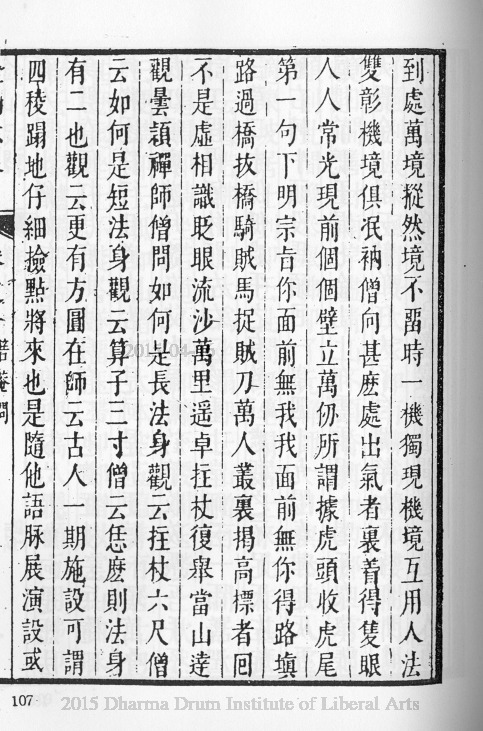 到處萬境摐然境不畱時一機獨現機境互用人法
雙彰機境俱泯衲僧向甚麽處出氣者裏着得隻眼
人人常光現前個個壁立萬仞所謂據虎頭收虎尾
第一句下明宗旨你面前無我我面前無你得路塡
路過橋㧞橋騎賊馬捉賊刀萬人叢裏揭高標者囘
不是虛相識眨眼流沙萬里遥卓拄杖復舉當山達
觀曇頴禪師僧問如何是長法身觀云拄杖六尺僧
云如何是短法身觀云算子三寸僧云恁麽則法身
有二也觀云更有方圓在師云古人一期施設可謂
四稜蹋地仔細撿點將來也是隨他語脉展演設或
107
2015 Dharma Drum Institute of Liberal Arts